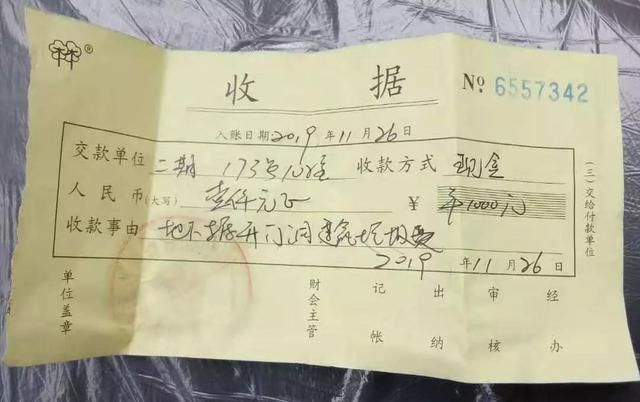 收据
№ 6557342
入账日期2019年11月26日
交款单位 二期173号102室 收款方式 现金
人民币(大写) 壹仟元正 ¥ 1000元
收款事由 地下室开门洞建筑垃圾费
2019年11月26日
(三)交给付款单位
单位盖章 财会主管 记帐 出纳 审核 经办